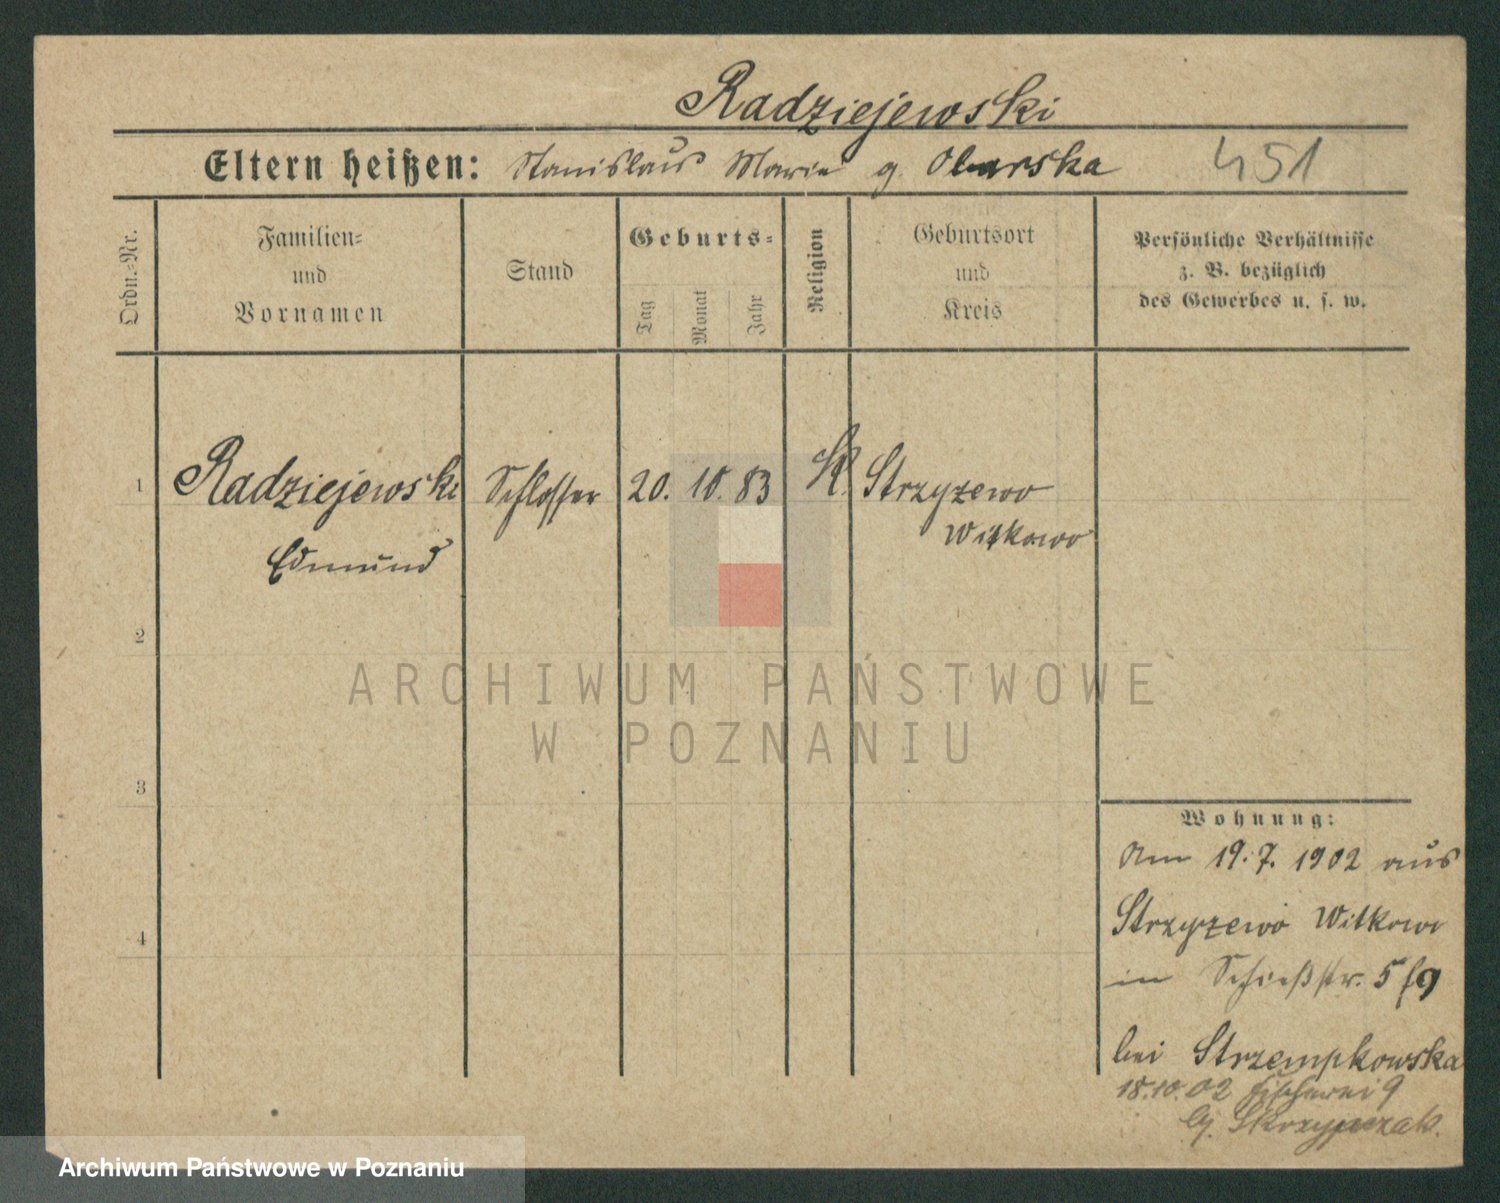 Radziejewski
Eltern heißen: Stanislaus Marie g. Obarska 451
Ordn.-Nr.
Familien=
und
Vornamen
Stand
Geburts=
Tag
Monat
Jahr
Religion
Geburtsort
und
Kreis
Persönliche Verhältnisse
z. B. bezüglich
des Gewerbes u. s. w.
1 Radziejewski Schlosser 20. 10. 83 K. Strzyzewo
Edmund Witkowo
2
3
4
ARCHIWUM PAŃSTWOWE
W POZNANIU
Wohnung:
Am 19. 7. 1902 aus
Strzyzewo Witkowo
in Schießstr. 5
bei Strzempkowska
18.10.02 Fischerei 9
Skrzypczak.
Archiwum Państwowe w Poznaniu